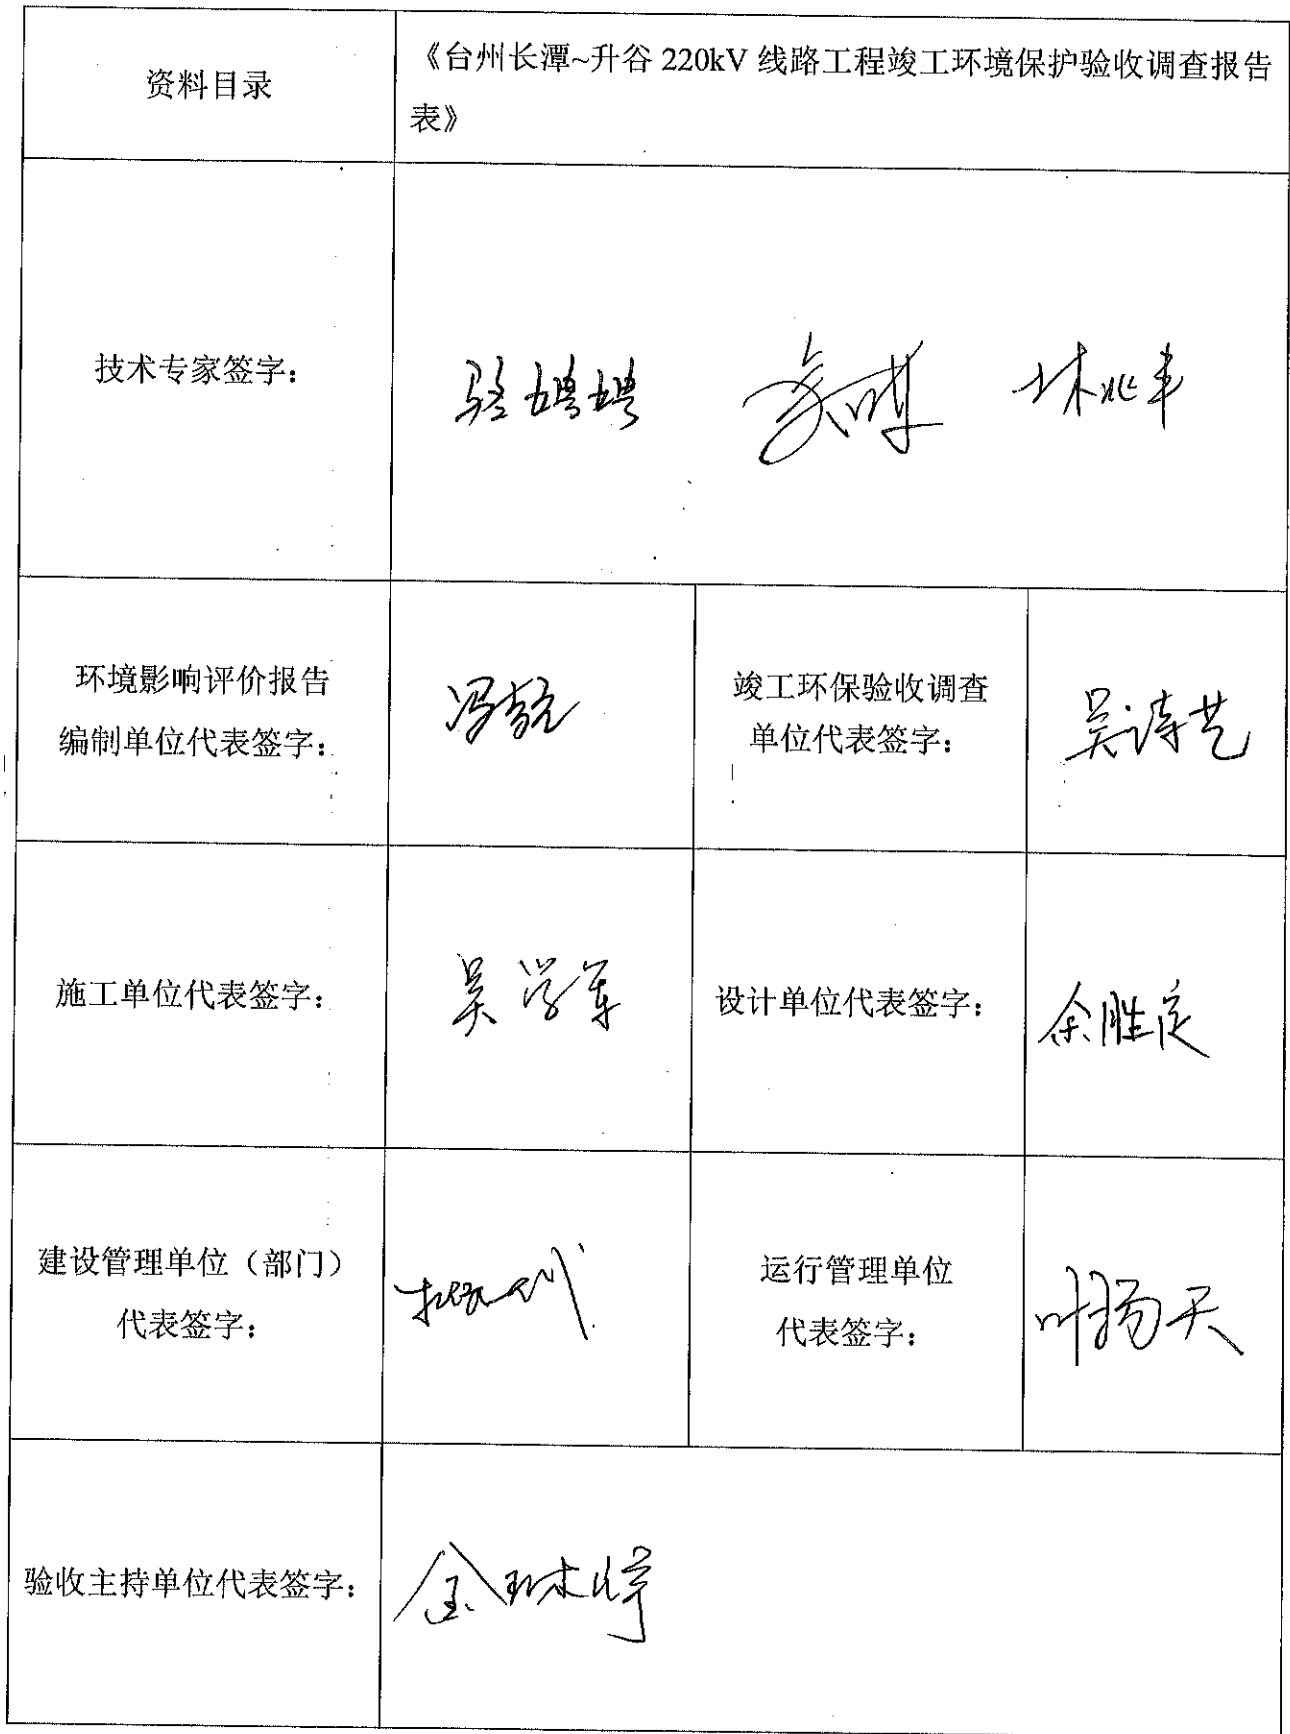 资料目录
《台州长潭~升谷 220kV 线路工程竣工环境保护验收调查报告
表》
技术专家签字：
骆娉娉 林兆丰
环境影响评价报告
编制单位代表签字：
竣工环保验收调查
单位代表签字：
吴诗艺
施工单位代表签字：
吴学军
设计单位代表签字：
余胜定
建设管理单位（部门）
代表签字：
运行管理单位
代表签字：
叶扬天
验收主持单位代表签字：
金琳婷